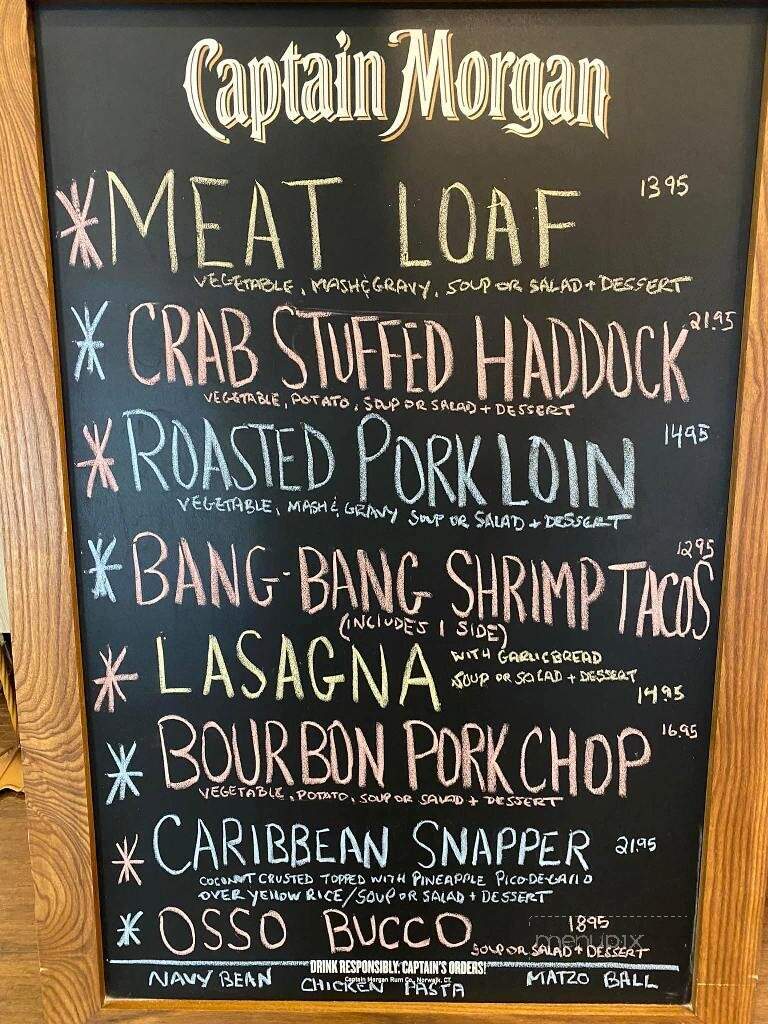 Captain Morgan
*MEAT LOAF 13 95
VEGETABLE, MASH & GRAVY, SOUP OR SALAD + DESSERT
* CRAB STUFFED HADDOCK 21.95
VEGETABLE, POTATO, SOUP OR SALAD + DESSERT
*ROASTED PORK LOIN 14 95
VEGETABLE, MASH & GRAVY SOUP OR SALAD + DESSERT
*BANG-BANG SHRIMP TACOS 12 95
(INCLUDES 1 SIDE)
* LASAGNA WITH GARLIC BREAD
SOUP OR SALAD + DESSERT
14.95
* BOURBON PORK CHOP 16.95
VEGETABLE, POTATO, SOUP OR SALAD + DESSERT
* CARIBBEAN SNAPPER 21.95
COCONUT CRUSTED TOPPED WITH PINEAPPLE PICO-DE-GALLO
OVER YELLOW RICE/SOUP OR SALAD + DESSERT
* OSSO BUCCO 18 95
menupix
SOUP OR SALAD + DESSERT
DRINK RESPONSIBLY: CAPTAIN'S ORDERS!
Captain Morgan Rum Co., Norwalk, CT
NAVY BEAN CHICKEN PASTA MATZO BALL